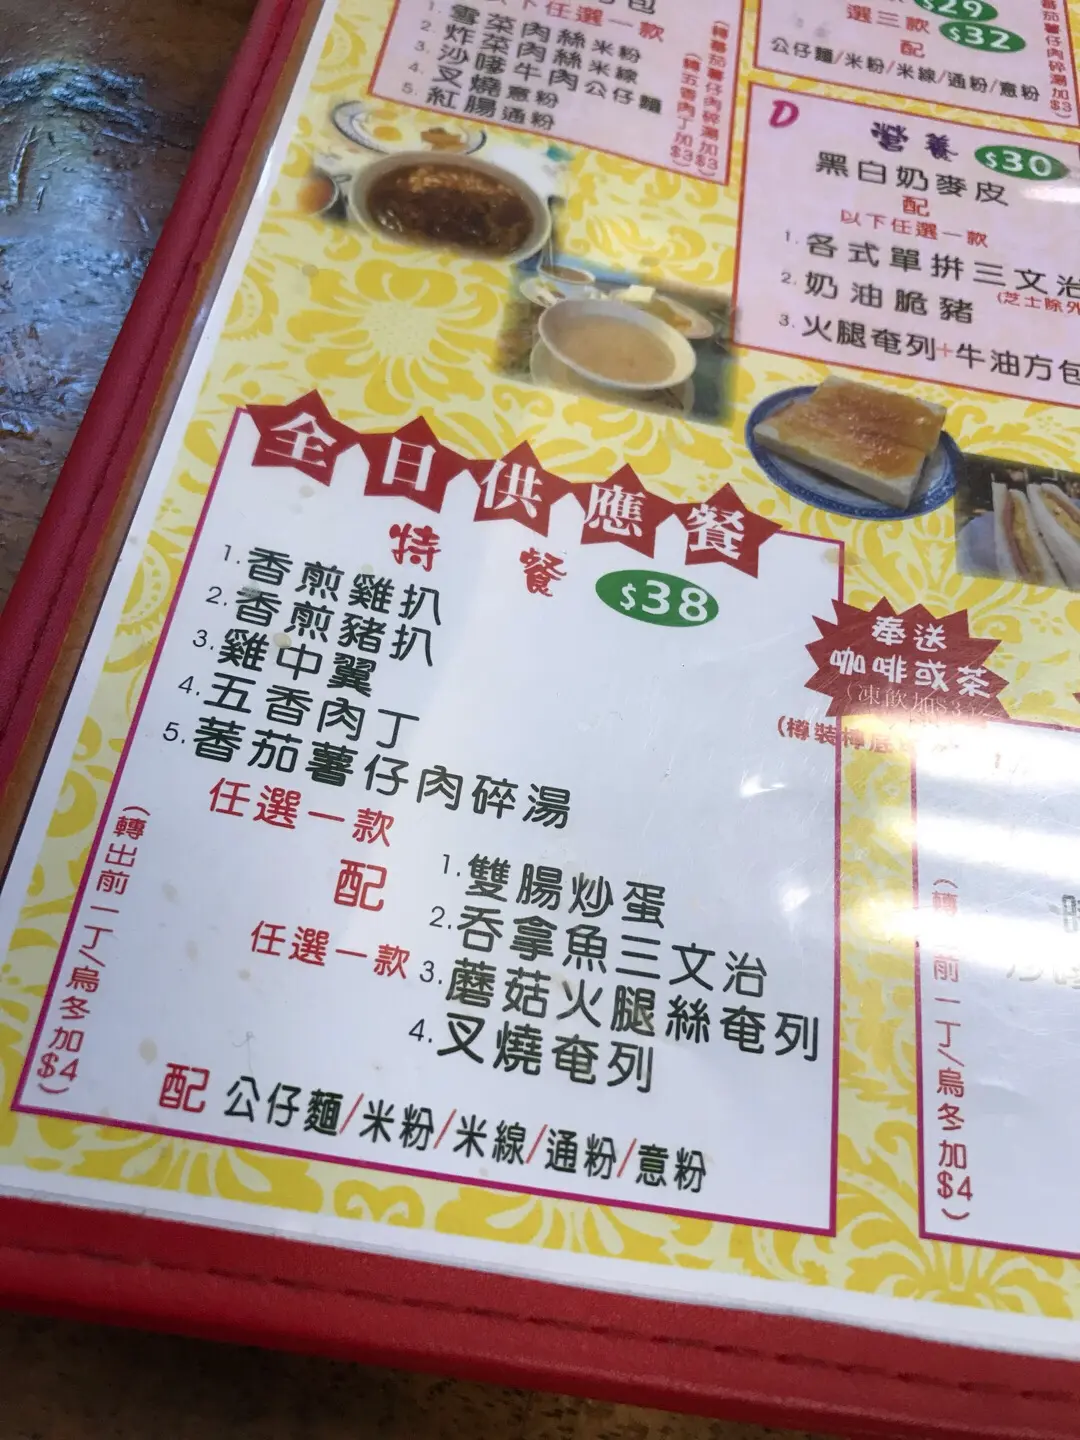 以下任選一款
1. 雪菜肉絲米粉
2. 炸菜肉絲米線
3. 沙嗲牛肉公仔麵
4. 叉燒意粉
5. 紅腸通粉
(轉蕃茄薯仔肉碎湯加$3)
(轉五香肉丁加$3)
$29
選三款 $32
配
公仔麵/米粉/米線/通粉/意粉
蕃茄薯仔肉碎湯加$3
D 營養 $30
黑白奶麥皮
配
以下任選一款
1. 各式單拼三文治
(芝士除外
2. 奶油脆豬
3. 火腿奄列+牛油方包
全日供應餐
特餐 $38
1. 香煎雞扒
2. 香煎豬扒
3. 雞中翼
4. 五香肉丁
5. 蕃茄薯仔肉碎湯
任選一款
配
任選一款
1. 雙腸炒蛋
2. 吞拿魚三文治
3. 蘑菇火腿絲奄列
4. 叉燒奄列
配 公仔麵/米粉/米線/通粉/意粉
(轉出前一丁/烏冬加$4)
奉送
咖啡或茶
(凍飲加$3)
(樽裝
前一丁/烏冬加$4)